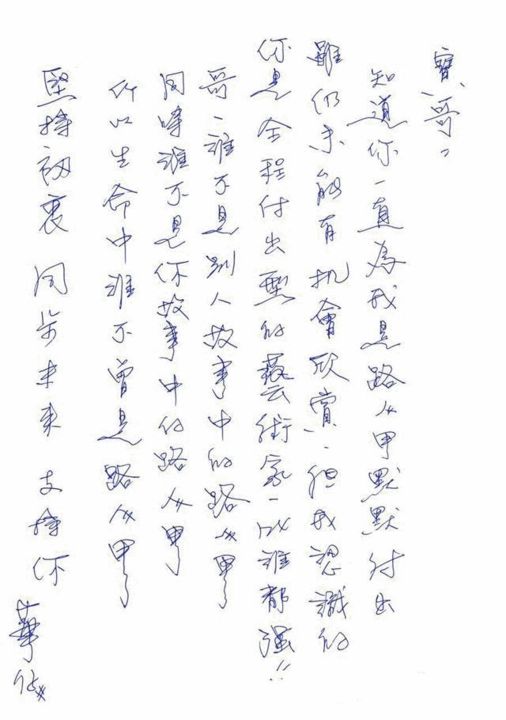 寶哥：
知道你一直為我是路人甲默默付出
雖仍未能有机會欣賞，但我認識的
你是全程付出型的藝術家，比誰都强!!
哥，誰不是別人故事中的路人甲
同時誰不是你故事中的路人甲
所以生命中誰不曾是路人甲
堅持初衷 同步未來 支持你
華仔